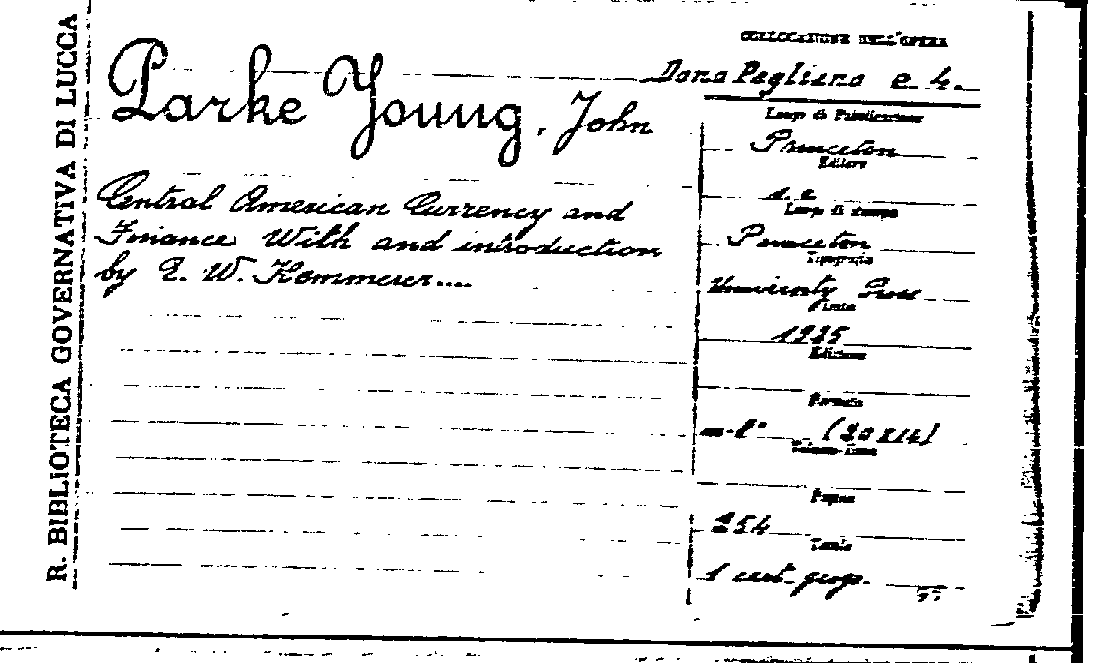 R. BIBLIOTECA GOVERNATIVA DI LUCCA
Parke Young, John
Central American Currency and
Finance. With and introduction
by E. W. Kemmerer....
COLLOCAZIONE DELL'OPERA
Dono Pagliano e. 4.
Luogo di Pubblicazione
Princeton
Editore
s. e
Luogo di stampa
Princeton
Tipografia
University Press
Data
1925
Edizione
Formato
in-8° (20x14)
Pagine
254
Tavole
1 cart. geogr.